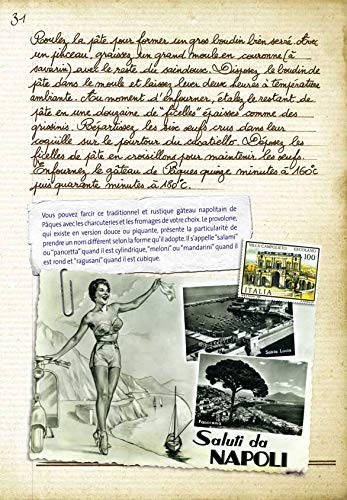 31
Rouler la pâte pour former un gros boudin bien serré. Avec
un pinceau, graissez un grand moule en couronne (à
savarin) avec le reste du saindoux. Disposez le boudin de
pâte dans le moule et laissez lever deux heures à température
ambiante. Au moment d'enfourner, étalez le restant de
pâte en une douzaine de "ficelles" épaisses comme des
grissinis. Répartissez les six œufs crus dans leur
coquille sur le pourtour du casatiello. Déposez les
ficelles de pâte en croisillons pour maintenir les œufs.
Enfournez le gâteau de Pâques quinze minutes à 160°C
puis quarante minutes à 180°C.
Vous pouvez farcir ce traditionnel et rustique gâteau napolitain de
Pâques avec les charcuteries et les fromages de votre choix. Le provolone,
qui existe en version douce ou piquante, présente la particularité de
prendre un nom différent selon la forme qu'il adopte. Il s'appelle "salami"
ou "pancetta" quand il est cylindrique, "meloni" ou "mandarini" quand il
est rond et "ragusani" quand il est cubique.
VILLA CAMPOLIETO ERCOLANO
100
ITALIA
Santa Lucia
Panorama
Saluti da
NAPOLI